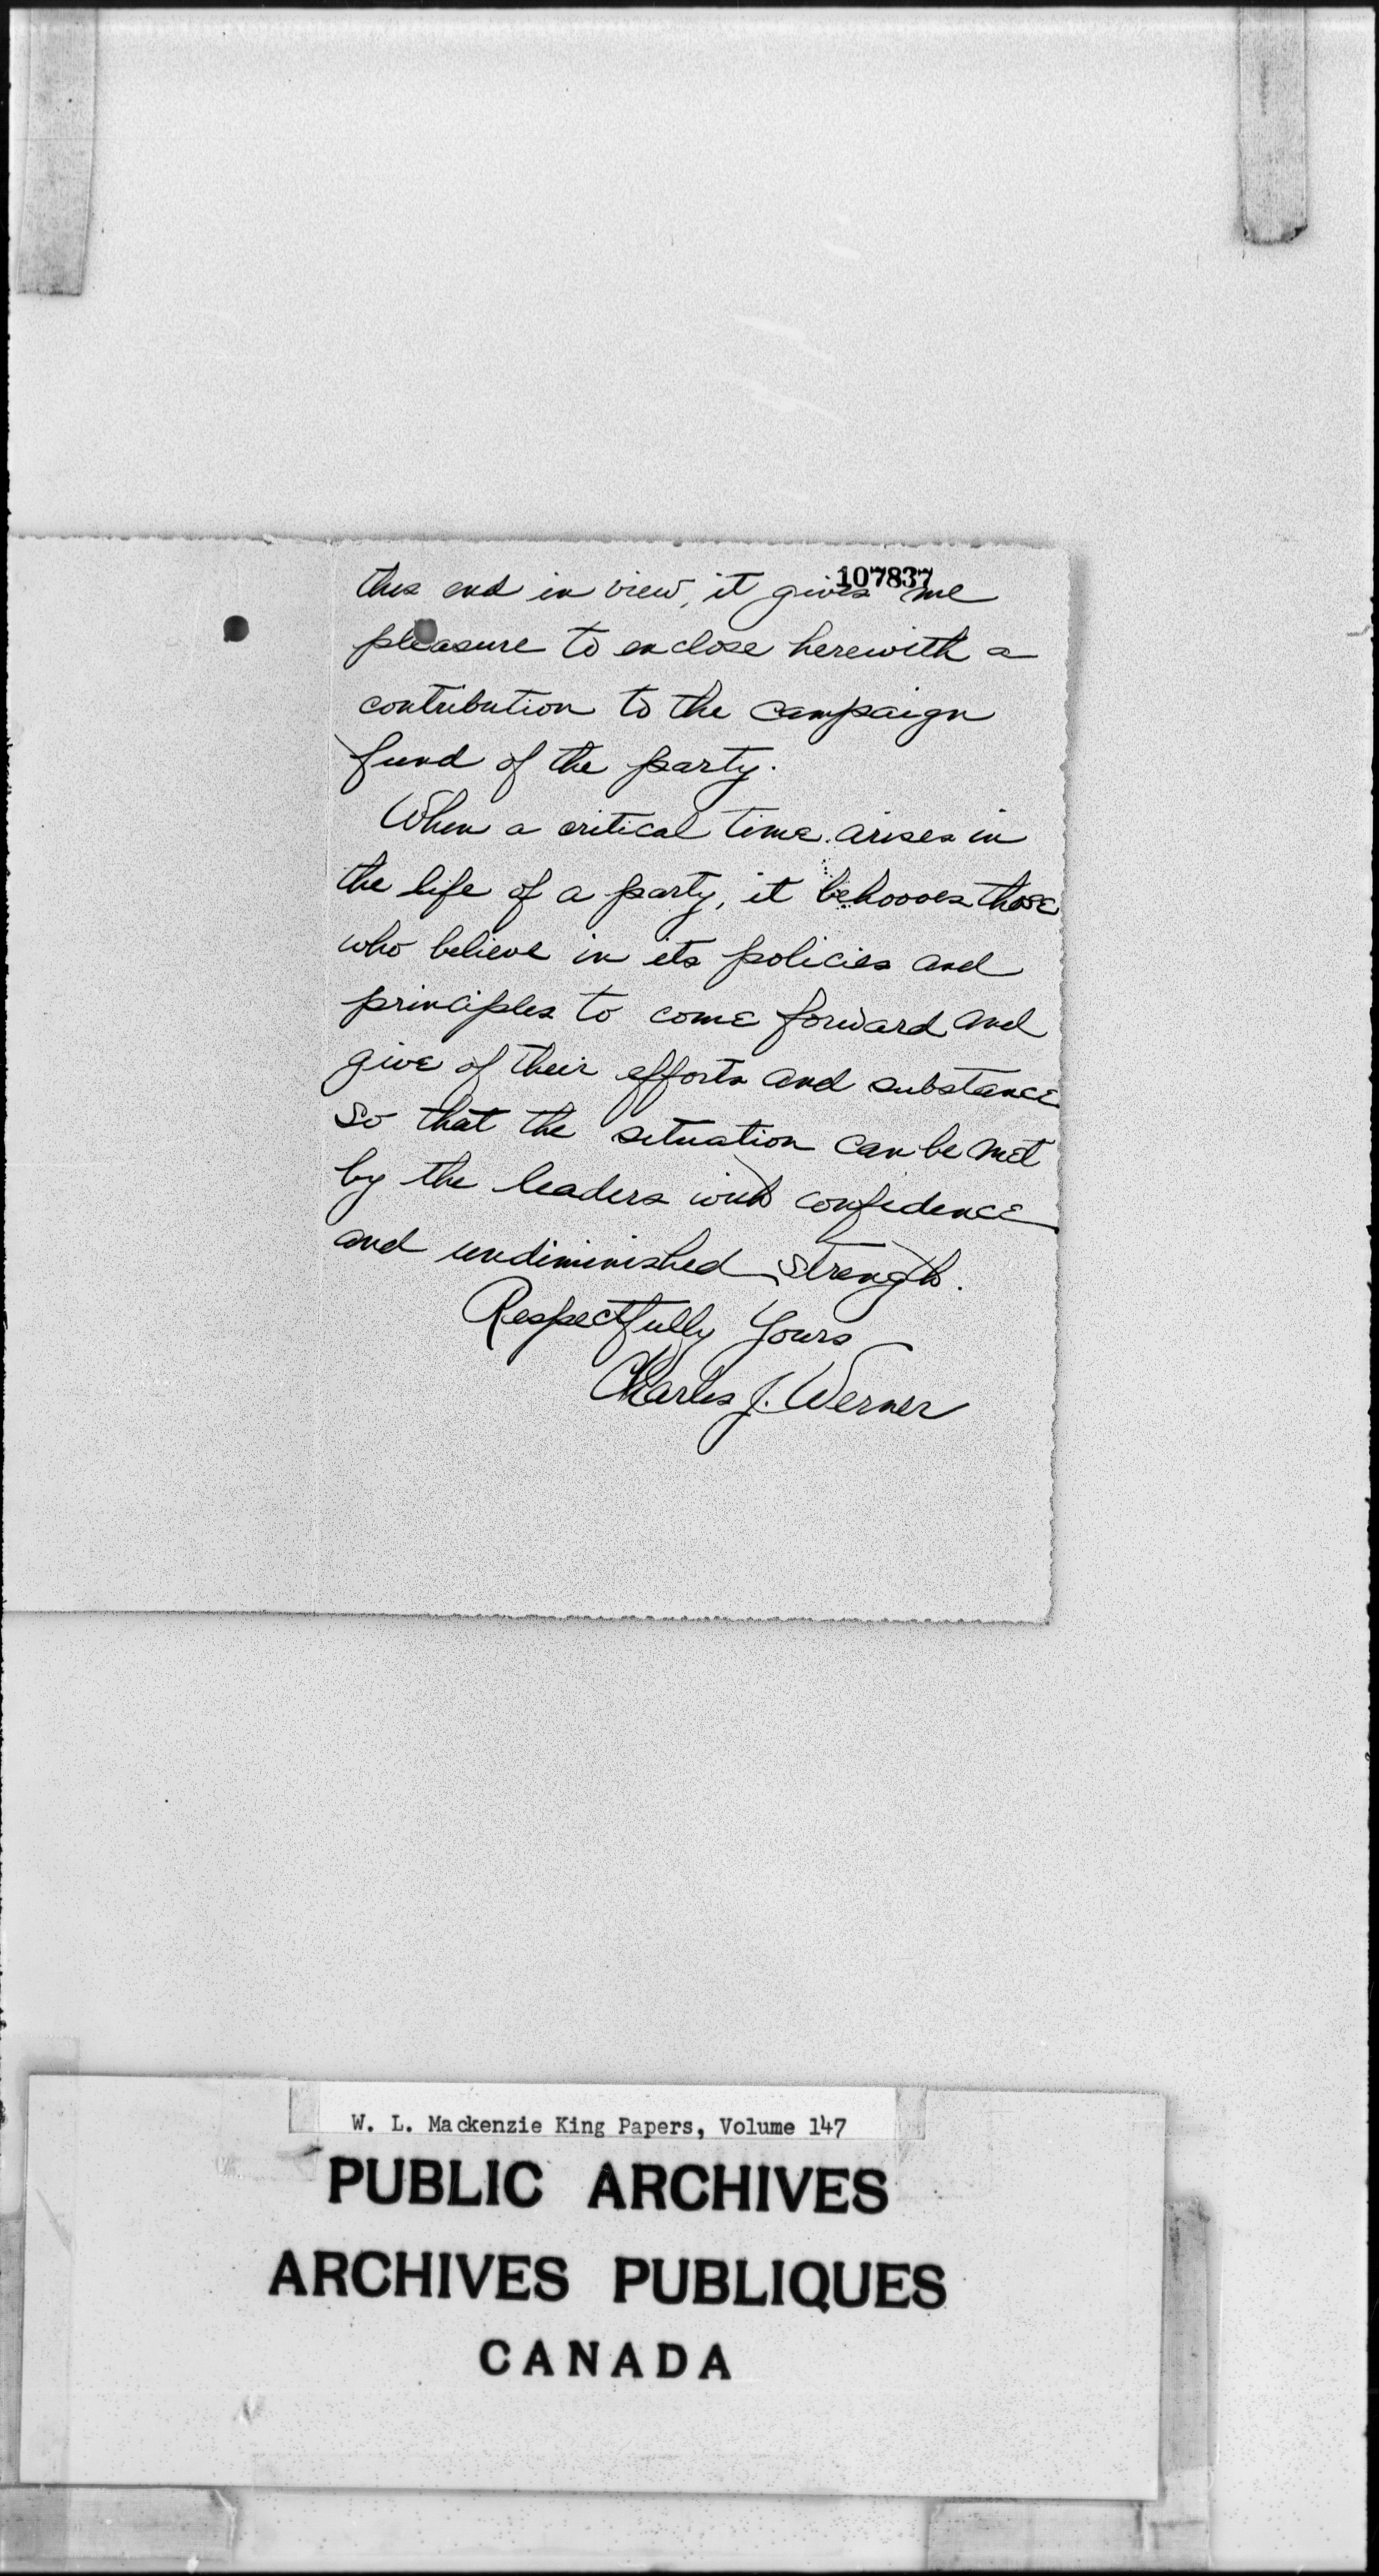 107837
this end in view, it gives me
pleasure to enclose herewith a
contribution to the campaign
fund of the party.
When a critical time arises in
the life of a party, it behooves those
who believe in its policies and
principles to come forward and
give of their efforts and substance
so that the situation can be met
by the leaders with confidence
and undiminished strength.
Respectfully Yours
Charles J. Werner
W. L. Mackenzie King Papers, Volume 147
PUBLIC ARCHIVES
ARCHIVES PUBLIQUES
CANADA